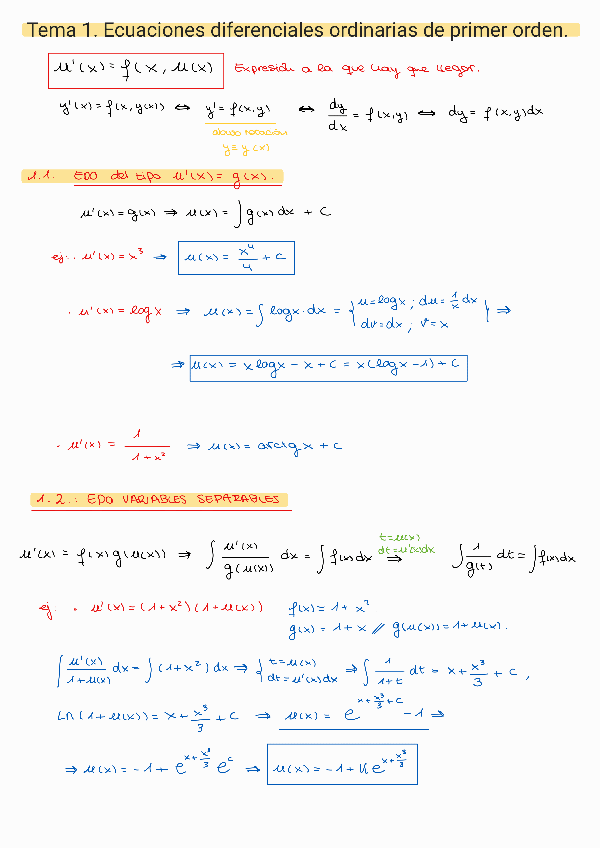 Tema 1. Ecuaciones diferenciales ordinarias de primer orden.
u'(x) = f(x, u(x)) Expresión a la que hay que llegar.
y'(x) = f(x, y(x)) ⇔ y' = f(x,y) ⇔ dy/dx = f(x,y) ⇔ dy = f(x,y)dx
abuso notación
y = y(x)
1.1. EDO del tipo u'(x) = g(x).
u'(x) = g(x) ⇒ u(x) = ∫ g(x) dx + C
ej.: u'(x) = x³ ⇒ u(x) = x⁴/4 + C
· u'(x) = log x ⇒ u(x) = ∫ log x · dx = { u = log x ; du = 1/x dx
dv = dx ; v = x } ⇒
⇒ u(x) = x log x − x + C = x(log x − 1) + C
· u'(x) = 1/(1+x²) ⇒ u(x) = arctg x + C
1.2.: EDO VARIABLES SEPARABLES
u'(x) = f(x) g(u(x)) ⇒ ∫ u'(x)/g(u(x)) dx = ∫ f(x) dx t = u(x) dt = u'(x)dx ⇒ ∫ 1/g(t) dt = ∫ f(x) dx
ej. · u'(x) = (1+x²)(1+u(x)) f(x) = 1 + x²
g(x) = 1 + x // g(u(x)) = 1 + u(x).
∫ u'(x)/(1+u(x)) dx = ∫ (1+x²) dx ⇒ { t = u(x) dt = u'(x)dx ⇒ ∫ 1/(1+t) dt = x + x³/3 + C,
Ln(1+u(x)) = x + x³/3 + C ⇒ u(x) = e^(x + x³/3 + C) − 1 ⇒
⇒ u(x) = −1 + e^(x + x³/3) e^C ⇒ u(x) = −1 + K e^(x + x³/3)